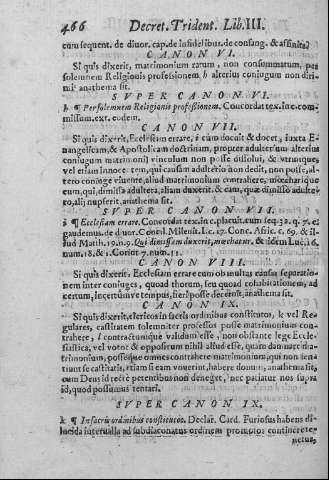 466 Decret. Trident. Lib. III.
cum sequent. de diuor. cap. de infidelibus. de consang. & affinita.
CANON VI.
Si quis dixerit, matrimonium ratum, non consummatum, per
solemnem Religionis professionem h alterius coniugum non diri-
mi anathema sit.
SVPER CANON VI.
h ¶ Per solemnem Religionis professionem. Concordat tex. in c. com-
missum. ext. eodem.
CANON VII.
Si quis dixerit, Ecclesiam errare, i cum docuit & docet, iuxta E-
uangelicam, & Apostolicam doctrinam, propter adulterium alterius
coniugum matrimonij vinculum non posse dissolui, & vtrumque,
vel etiam innocentem, qui causam adulterio non dedit, non posse, al-
tero coniuge viuente, aliud matrimonium contrahere, mœcharique
eum, qui, dimissa adultera, aliam duxerit, & eam, quæ dimisso adulte-
ro, alij nupserit, anathema sit.
SVPER CANON VII.
i ¶ Ecclesiam errare. Concordat tex. in c. placuit. cum seq. 32. q. 7. c.
gaudemus. de diuor. Concil. Mileuit. 17. Conc. Afric. c. 69. & il-
lud Matth. 19. n. 9. Qui dimissam duxerit, mœchatur, & idem Luc. 16.
num. 18. & 1. Corint 7. num. 11.
CANON VIII.
Si quis dixerit, Ecclesiam errare cum ob multas causas separatio-
nem inter coniuges, quoad thorum, seu quoad cohabitationem, ad
certum, incertumve tempus, fieri posse decernit, anathema sit.
CANON IX.
Si quis dixerit, clericos in sacris ordinibus constitutos, k vel Re-
gulares, castitatem solemniter professos posse matrimonium con-
trahere, l contractumque validum esse, non obstante lege Eccle-
siastica, vel voto: & oppositum nihil aliud esse, quam damnare ma-
trimonium, posseque omnes contrahere matrimonium, qui non sen-
tiunt se castitatis, etiam si eam vouerint, habere donum, anathema sit,
cum Deus id recte petentibus non deneget, nec patiatur nos supra
id, quod possumus tentari.
SVPER CANON IX.
k ¶ In sacris ordinibus constitutos. Declar. Card. Furiosus habens di-
lucida interualla ad subdiaconatus ordinem promotus contincrete-
netur,